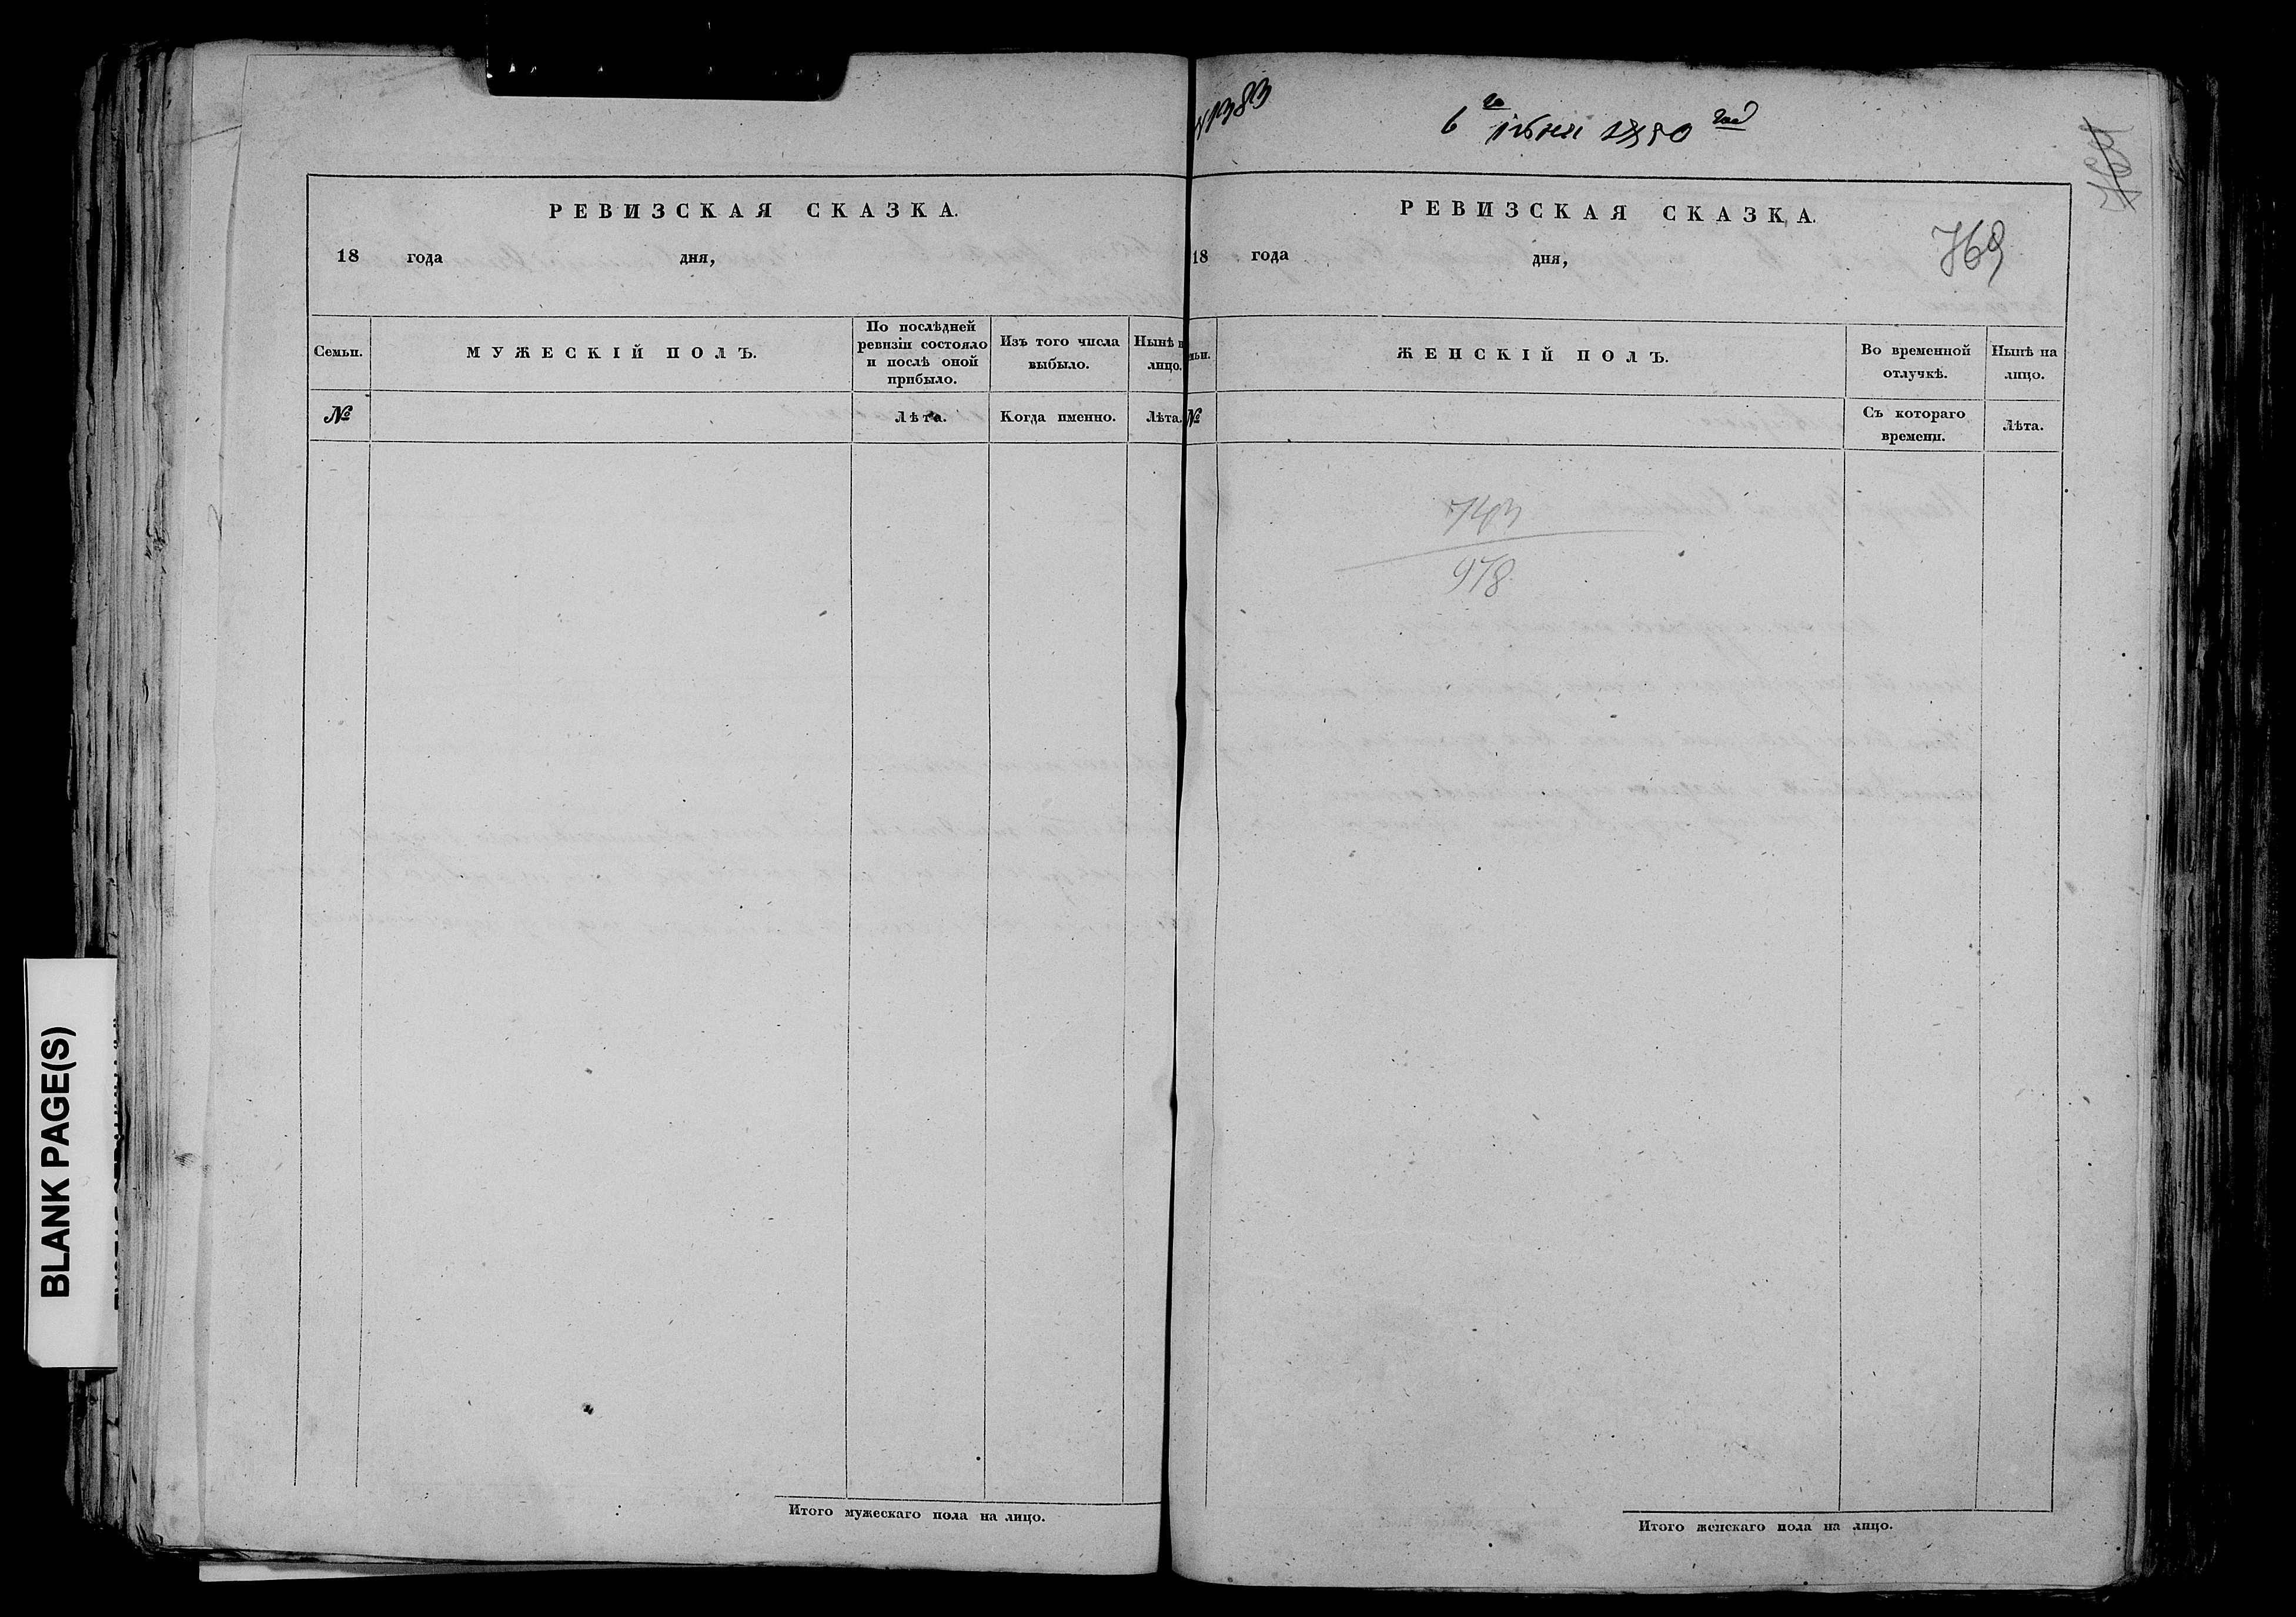 РЕВИЗСКАЯ СКАЗКА.
18 года дня,
Семьи.
МУЖЕСКІЙ ПОЛЪ.
По послѣдней
ревизіи состояло
и послѣ оной
прибыло.
Изъ того числа
выбыло.
Нынѣ н
лицо.
№
Лѣта.
Когда именно.
Лѣта.
Итого мужескаго пола на лицо.
№ 383
6го іюня 1850 год
769
РЕВИЗСКАЯ СКАЗКА.
18 года дня,
769
мьи.
ЖЕНСКІЙ ПОЛЪ.
Во временной
отлучкѣ.
Нынѣ на
лицо.
№
Съ котораго
времени.
Лѣта.
743
978
Итого женскаго пола на лицо.
BLANK PAGE(S)